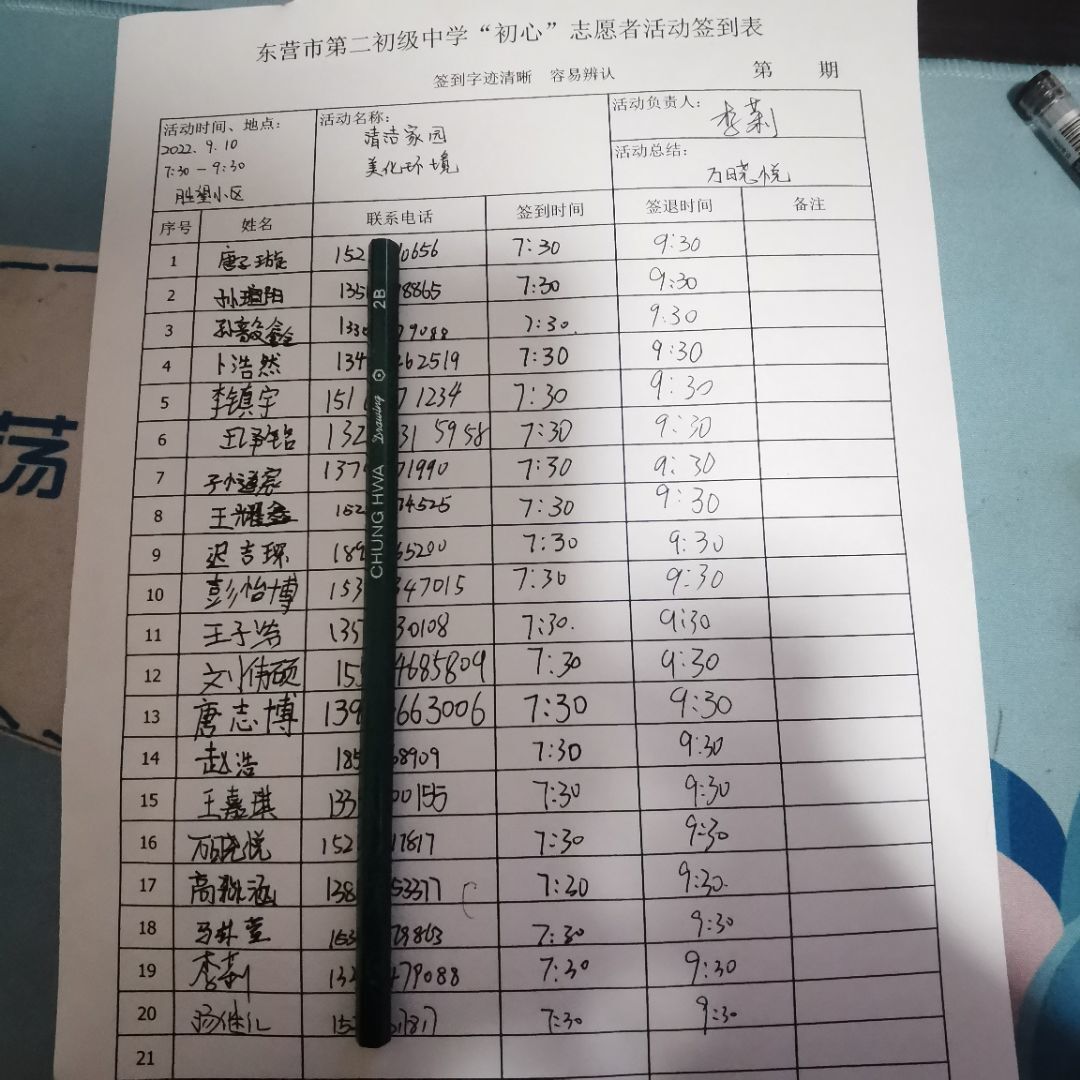 东营市第二初级中学“初心”志愿者活动签到表
签到字迹清晰 容易辨认 第 期
活动时间、地点：
2022.9.10
7:30－9:30
胜望小区
活动名称：
清洁家园
美化环境
活动负责人：
李莉
活动总结：
万晓悦
序号 姓名 联系电话 签到时间 签退时间 备注
1 唐子璇 152 0656 7:30 9:30
2 135 8865 7:30 9:30
3 133 79088 7:30. 9:30
4 卜浩然 134 462519 7:30 9:30
5 李镇宇 151 71234 7:30 9:30
6 132 31 5958 7:30 9:30
7 137 71990 7:30 9:30
8 152 34525 7:30 9:30
9 迟吉琛 189 65200 7:30 9:30
10 彭怡博 153 347015 7:30 9:30
11 王子浩 135 30108 7:30. 9:30
12 刘伟硕 155 4685809 7:30 9:30
13 唐志博 139 663006 7:30 9:30
14 赵浩 185 68909 7:30 9:30
15 王嘉琪 133 00155 7:30 9:30
16 万晓悦 152 17817 7:30 9:30
17 138 53377 7:30 9:30.
18 153 79863 7:30 9:30
19 李莉 132 479088 7:30 9:30
20 152 7817 7:30 9:30
21
CHUNG HWA Drawing 2B
荡